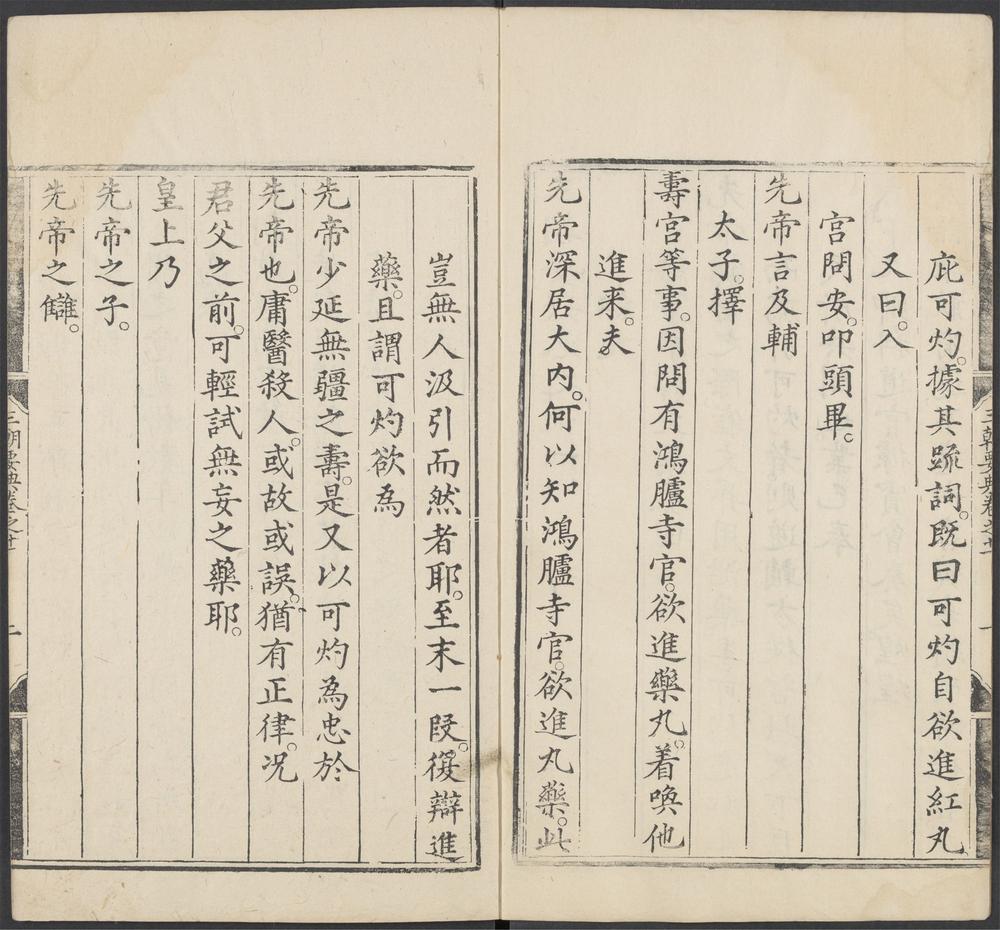 庇可灼。據其䟽詞。既曰可灼自欲進紅丸
又曰。入
宫問安。叩頭畢。
先帝言及輔
太子。擇
壽宫等事。因問有鴻臚寺官。欲進藥丸。着喚他
進来。夫
先帝深居大内。何以知鴻臚寺官。欲進丸藥。此
三朝要典卷之廿 一
豈無人汲引而然者耶。至末一段。復辯進
藥。且謂可灼欲為
先帝少延無疆之壽。是又以可灼為忠於
先帝也。庸醫殺人。或故或誤。猶有正律。况
君父之前。可輕試無妄之藥耶。
皇上乃
先帝之子。
先帝之讎。
三朝要典卷之廿 二